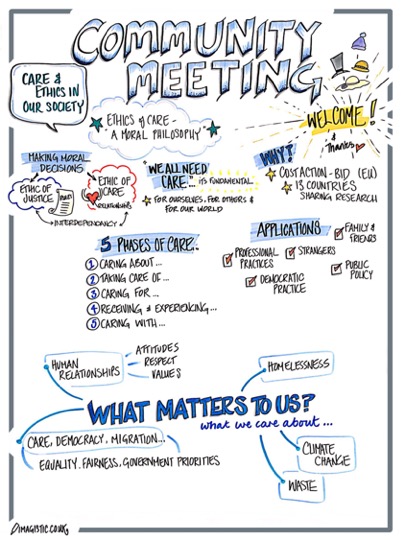 COMMUNITY
MEETING
CARE &
ETHICS IN
OUR SOCIETY
ETHICS of CARE -
A MORAL PHILOSOPHY
WELCOME!
& Thanks
MAKING MORAL
DECISIONS
ETHIC OF
JUSTICE
RULES
ETHIC OF
CARE
RELATIONSHIPS
INTERDEPENDANCY
"WE ALL NEED
CARE"... IT'S FUNDAMENTAL
FOR OURSELVES, FOR OTHERS &
FOR OUR WORLD
WHY?
COST ACTION - BID (EU)
13 COUNTRIES
SHARING RESEARCH
5 PHASES OF CARE..
1 CARING ABOUT...
2 TAKING CARE OF...
3 CARING FOR...
4 RECEIVING & EXPERIENCING...
5 CARING WITH...
APPLICATIONS
FAMILY &
FRIENDS
PROFESSIONAL
PRACTICES
STRANGERS
DEMOCRATIC
PRACTICE
PUBLIC
POLICY
HUMAN
RELATIONSHIPS
ATTITUDES
RESPECT
VALUES
HOMELESSNESS
WHAT MATTERS TO US?
what we care about...
CARE, DEMOCRACY, MIGRATION...
EQUALITY, FAIRNESS, GOVERNMENT PRIORITIES
CLIMATE
CHANGE
WASTE